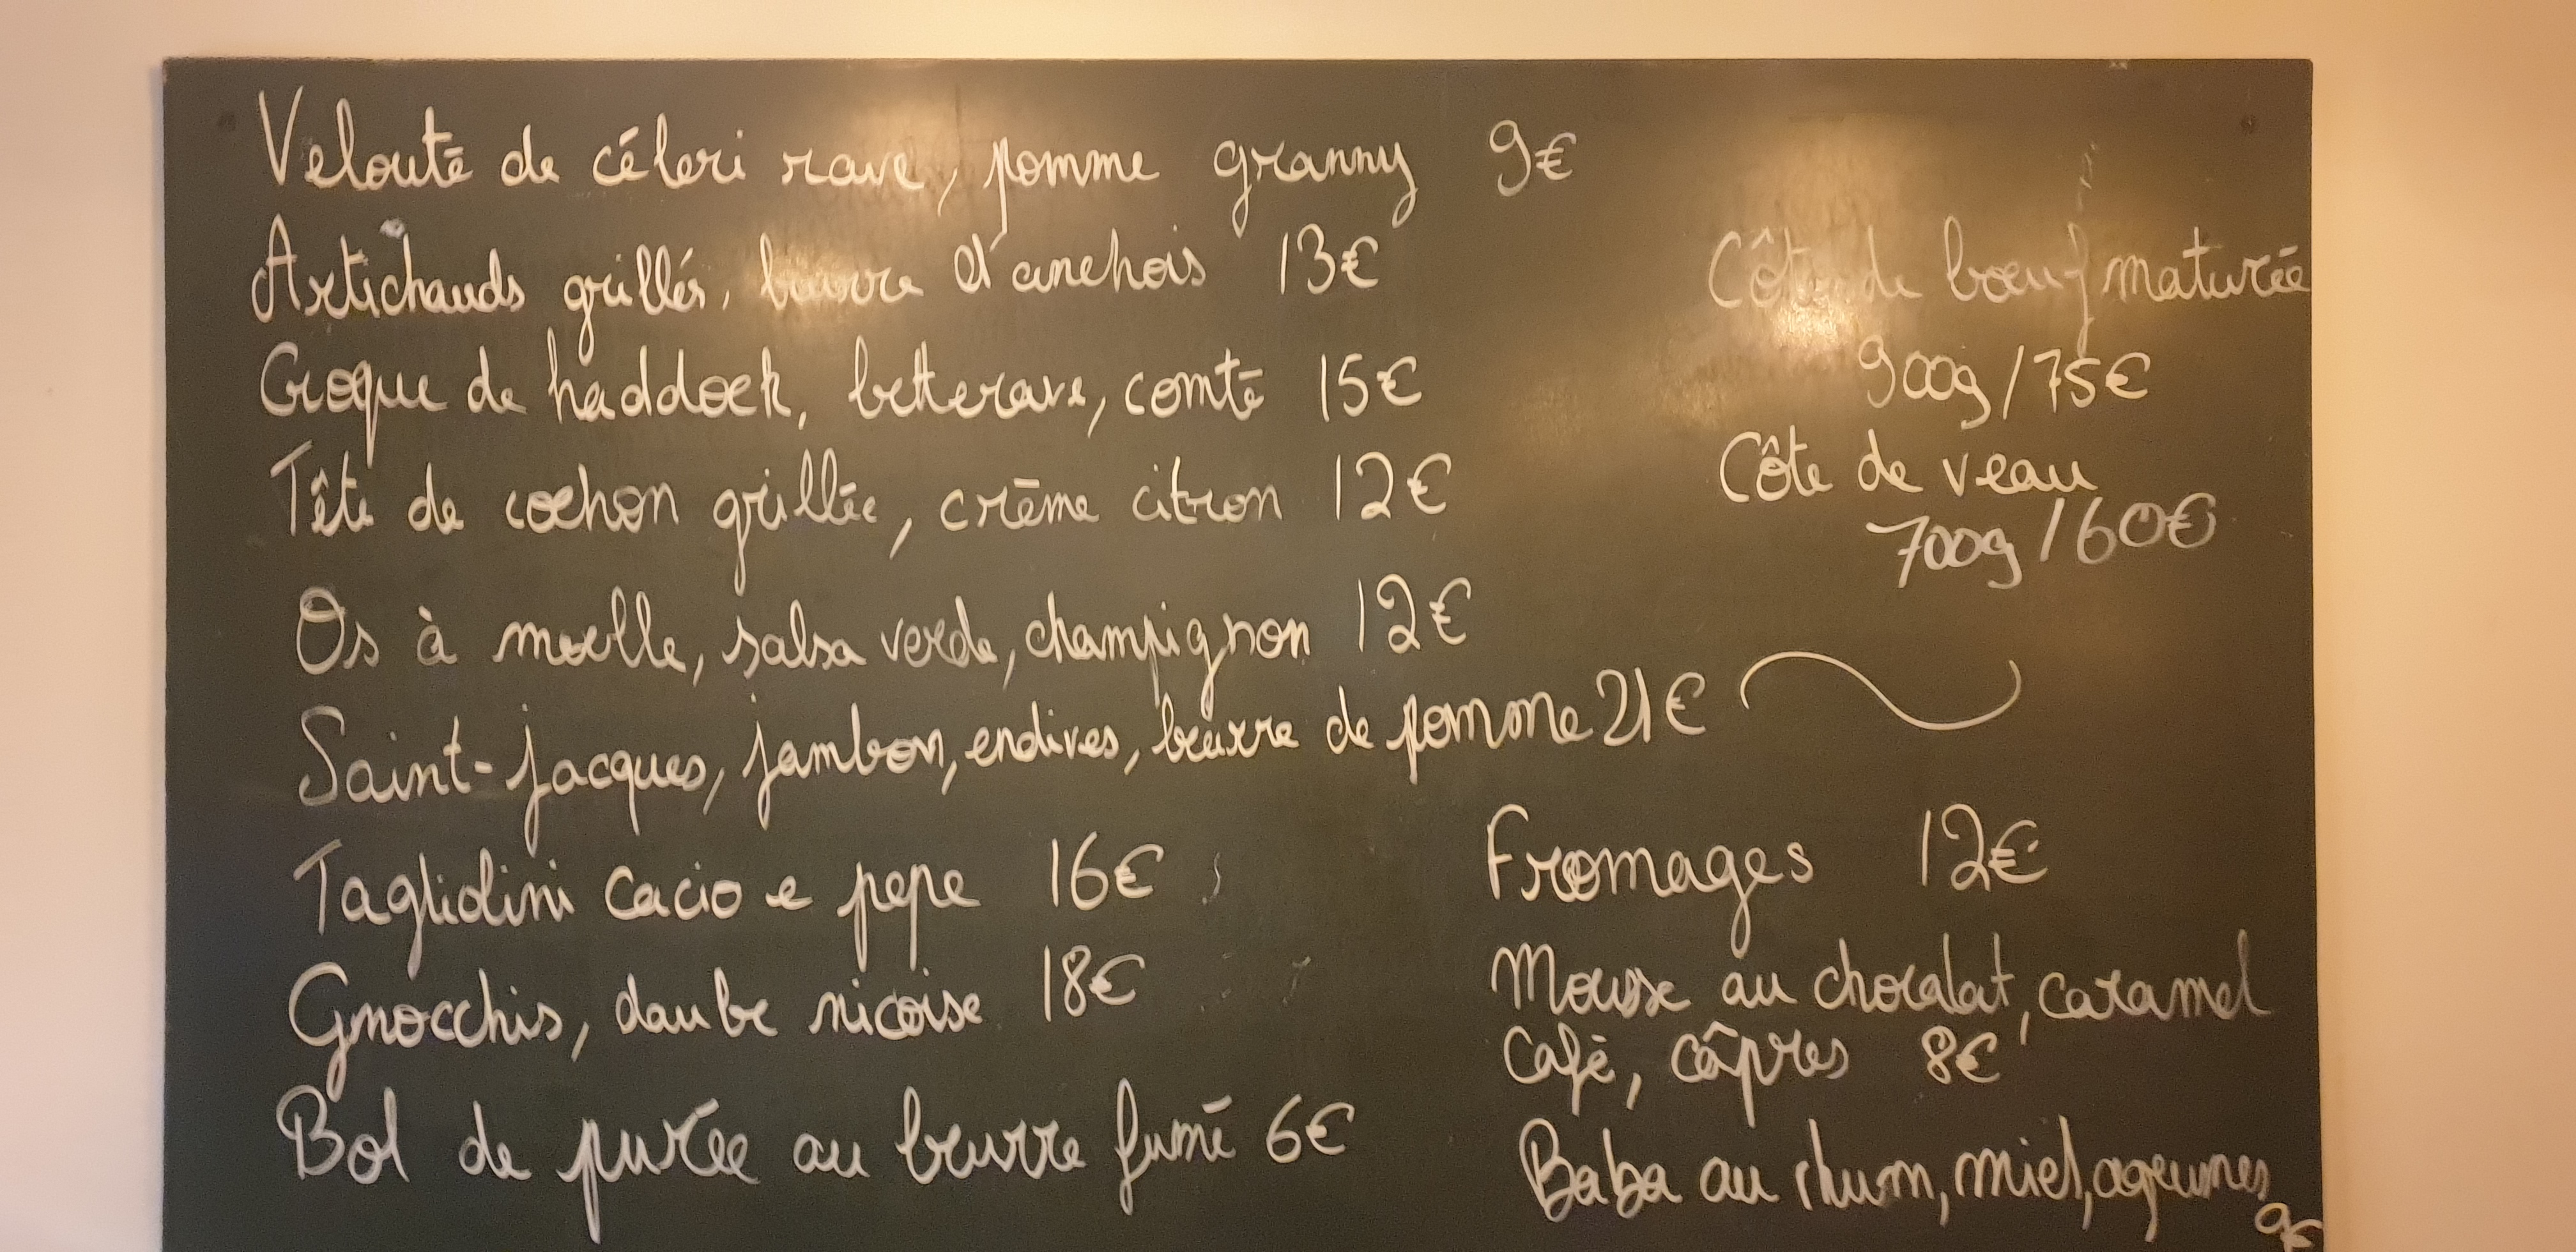 Velouté de céleri rave, pomme granny 9€
Artichauds grillés, beurre d'anchois 13€
Croque de haddock, betterave, comté 15€
Tête de cochon grillée, crème citron 12€
Os à moelle, salsa verde, champignon 12€
Saint-jacques, jambon, endives, beurre de pomme 21€
Tagliolini cacio e pepe 16€
Gnocchis, daube niçoise 18€
Bol de purée au beurre fumé 6€
Côte de bœuf maturée
900g/75€
Côte de veau
700g/60€
Fromages 12€
Mousse au chocolat, caramel
Café, câpres 8€
Baba au rhum, miel, agrumes
9€